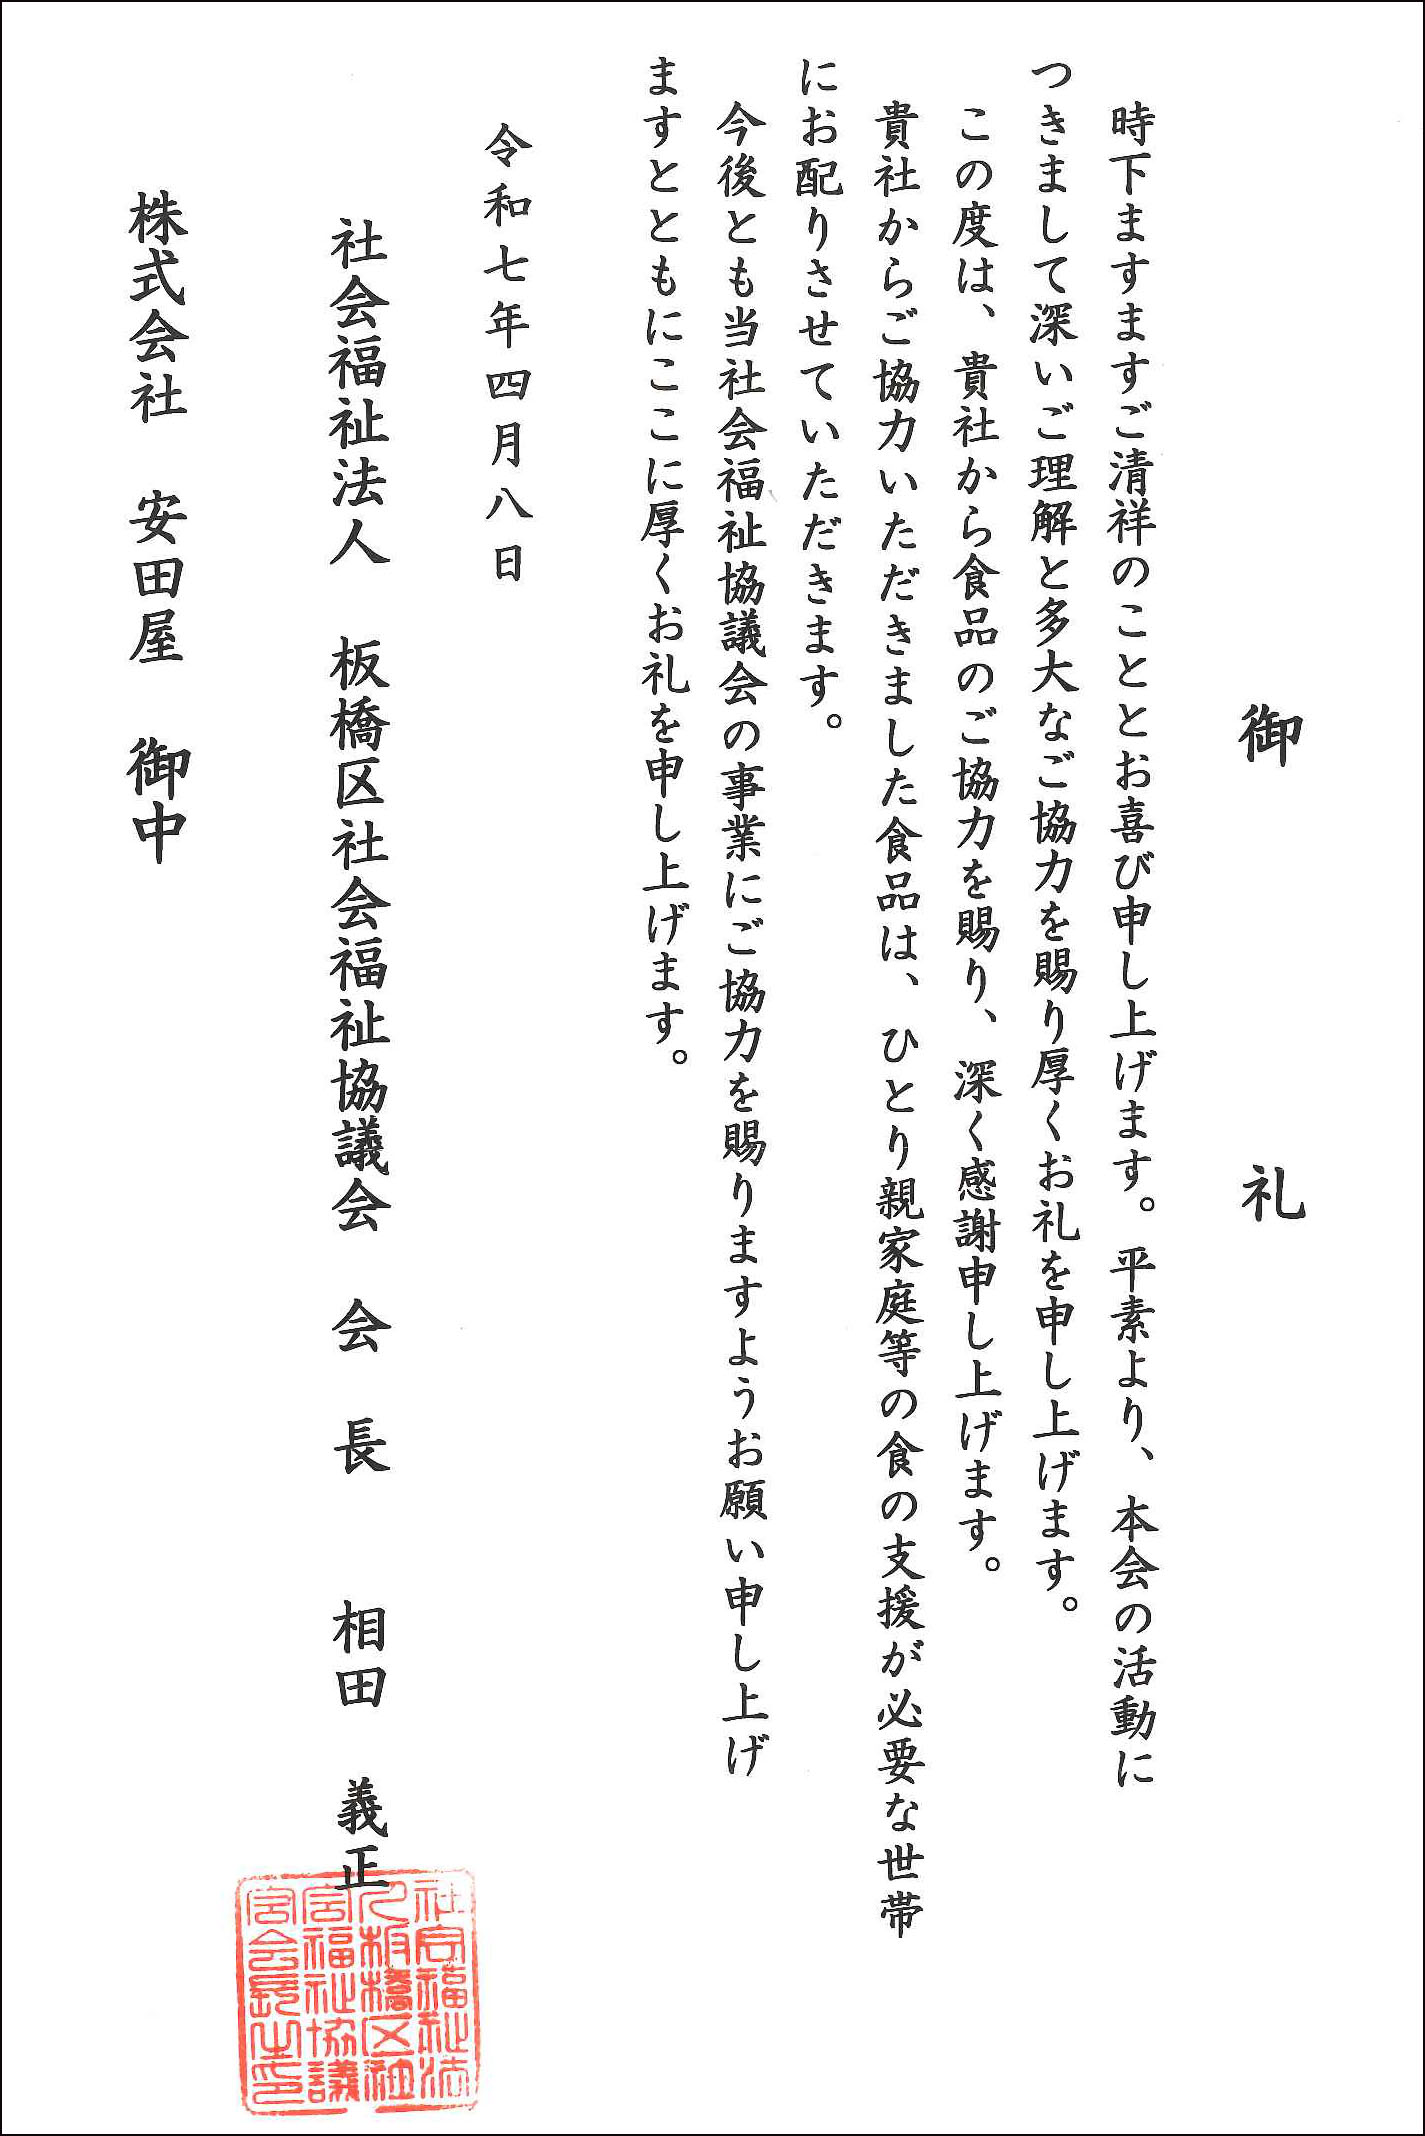 御 礼
時下ますますご清祥のこととお喜び申し上げます。平素より、本会の活動に
つきまして深いご理解と多大なご協力を賜り厚くお礼を申し上げます。
この度は、貴社から食品のご協力を賜り、深く感謝申し上げます。
貴社からご協力いただきました食品は、ひとり親家庭等の食の支援が必要な世帯
にお配りさせていただきます。
今後とも当社会福祉協議会の事業にご協力を賜りますようお願い申し上げ
ますとともにここに厚くお礼を申し上げます。
令和七年四月八日
社会福祉法人 板橋区社会福祉協議会 会 長 相田 義正
社会福祉法
人板橋区社
会福祉協議
会会長之印
株式会社 安田屋 御中